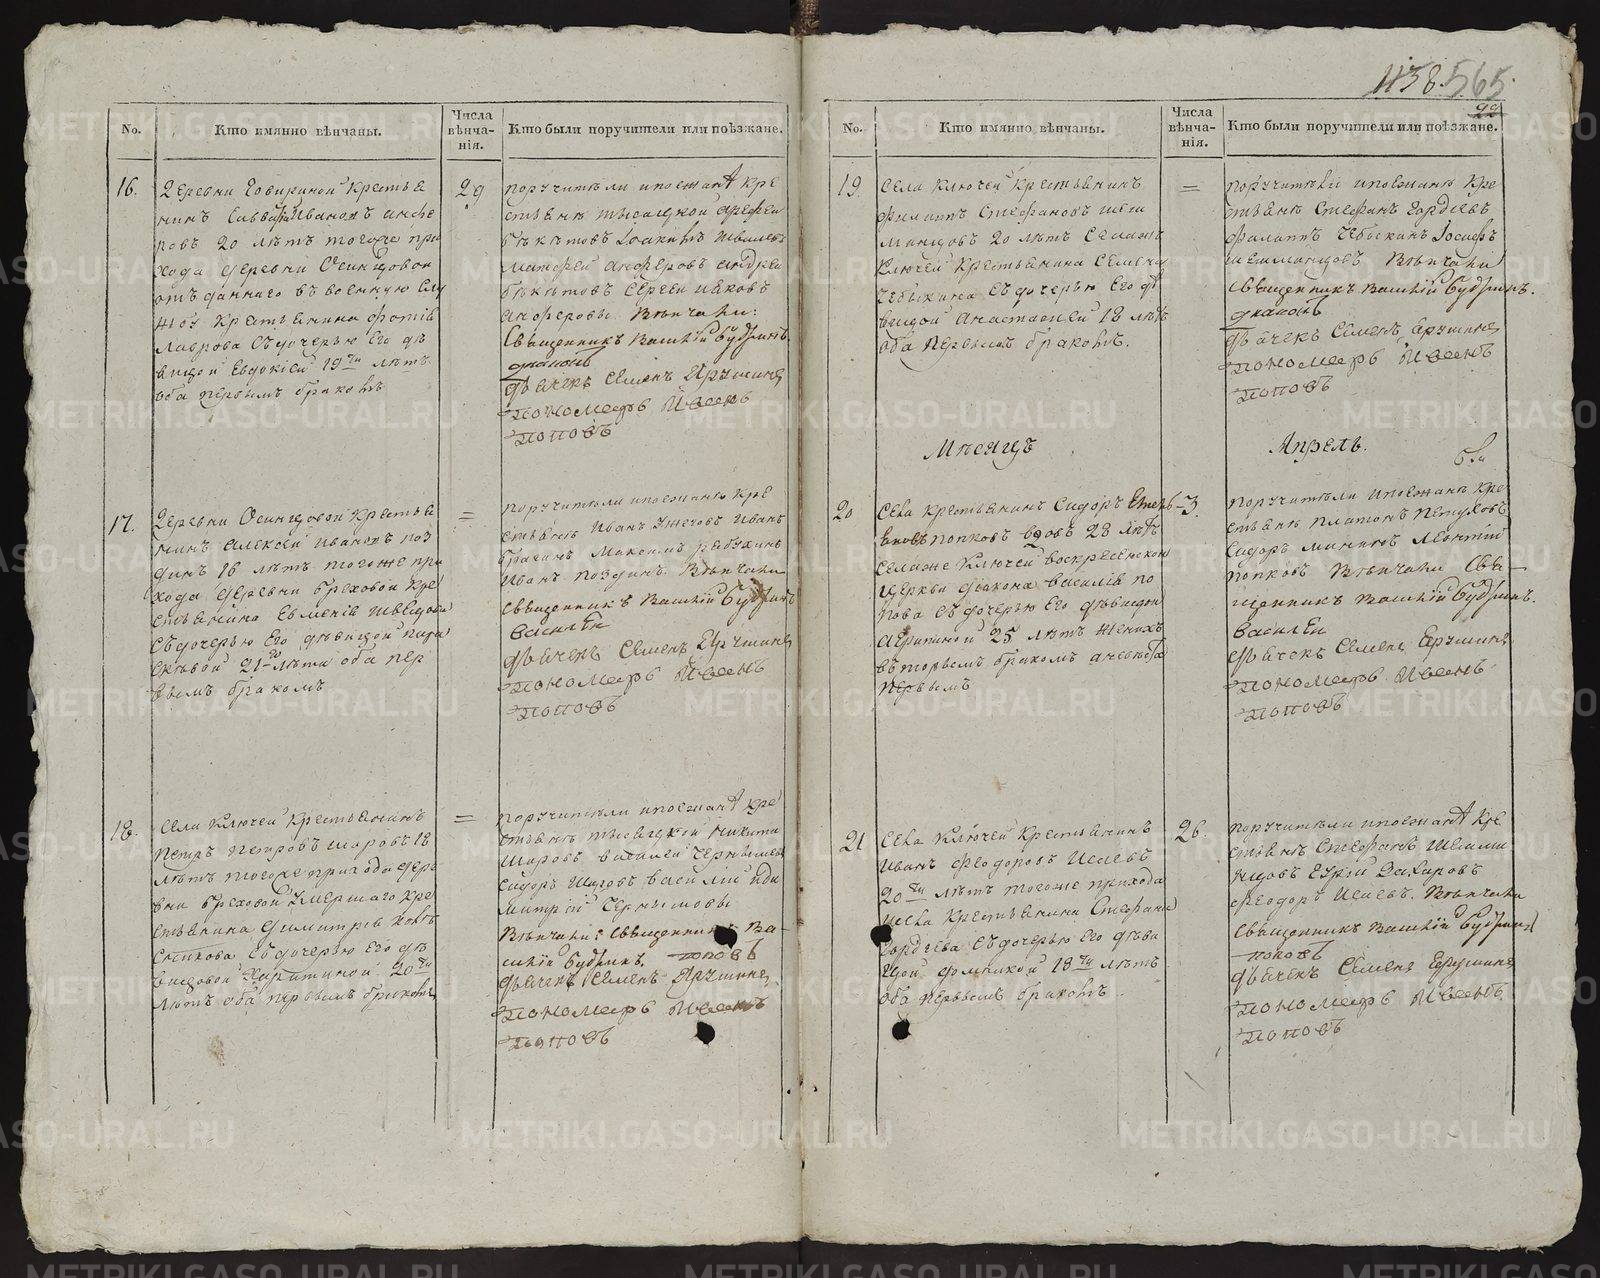 1138. 565.
22
No.
Кто имянно вѣнчаны.
Числа вѣнча-
нія.
Кто были поручители или поѣзжане.
16.
деревни Говириной крестья
нинъ Савва Ивановъ анфе
ровъ 20 лѣтъ тогоже при
хода деревни Осинцовои
отъданнаго въ военную слу
жбу крестьянина Фотія
Лаврова съдочерью Его дѣ
вицой Евдокіей 19ти лѣтъ
оба первымъ бракомъ
29
поручители ипоезжаня кре
стьяня тысяцкой
бѣкѣтовъ Іоакимъ Ивановъ
Матфей анферовъ андреи
бѣкѣтовъ Сергеи Ивановъ
анферовы. Вѣнчали:
Священникъ Василій Будринъ.
диаконъ
дьячекъ Семенъ Ярушинъ
пономарь Иванъ
поповъ
17.
деревни Осинцовой крестья
нинъ алексей Ивановъ поз
динъ 18 лѣтъ тогоже при
хода деревни бреховой кре
стьянина Евменія Швецова
съдочерью Его дѣвицой пара
скевой 21-го лѣта оба пер
вымъ бракомъ
=
поручители ипоезжаня кре
стьяня Иванъ Ивановъ
Максимъ рябухинъ
Иванъ поздинъ. Вѣнчали
священникъ Василій Будринъ
Василей
дьячекъ Семенъ Ярушинъ
пономарь Иванъ
поповъ
18.
Села Ключей крестьянинъ
Петръ Петровъ шаровъ 18
лѣтъ тогоже прихода дере
вни бреховой умершаго кре
стьянина димитрія
съдочерью Его дѣ
вицовой Харитиной 20ти
лѣтъ оба первымъ бракомъ
=
поручители ипоезжаня кре
стьяня тысяцкой никита
шаровъ василей чернышевъ
сидоръ шаровъ василій иди
митрій чернышовы
Вѣнчали: священникъ Ва-
силій Будринъ поповъ
дьячекъ Семенъ Ярушинъ
пономарь Иванъ
поповъ
No.
Кто имянно вѣнчаны.
Числа вѣнча-
нія.
Кто были поручители или поѣзжане.
19.
Села Ключей крестьянинъ
филаппъ Стефановъ шела
манцовъ 20 лѣтъ Селаже
Ключей крестьянина Семена
Чебыкина съдочерью Его дѣ
вицой анастасией 18 лѣтъ
оба первымъ бракомъ.
=
поручители ипоезжаня кре
стьяня Стефанъ Гордѣевъ
филаппъ Чебыкинъ Іосифъ
шеламанцовъ Вѣнчали
Священникъ Василій Будринъ.
диаконъ
дьячекъ Семенъ Ярушинъ
пономарь Иванъ
поповъ
Мѣсяцъ
Апрель.
20
Села крестьянинъ Сидоръ
попковъ вдовъ 28 лѣтъ
Селаже Ключей воскресенской
церкви дьякона василія по
пова съдочерью Его дѣвицой
агрипиной 25 лѣтъ женихъ
вторымъ бракомъ аневѣста
первымъ
-3.
поручители ипоезжаня кре
стьяня платонъ петуховъ
Сидоръ мининъ леонтій
попковъ Вѣнчали Свя-
щенникъ Василій Будринъ.
Василей
дьячекъ Семенъ Ярушинъ
пономарь Иванъ
поповъ
21
Села Ключей крестьянинъ
Иванъ феодоровъ Исаевъ
20ти лѣтъ тогоже прихода
исела крестьянина Стефана
Гордѣева съдочерью Его дѣви
цой домникой 18ти лѣтъ
оба первымъ бракомъ.
26.
поручители ипоезжаня кре
стьяня Стефанъ шелама
нцовъ Егоръ Захаровъ
феодоръ Исаевъ. Вѣнчали
священникъ Василій Будринъ
поповъ
дьячекъ Семенъ Ярушинъ
пономарь Иванъ
поповъ
METRIKI.GASO-URAL.RU